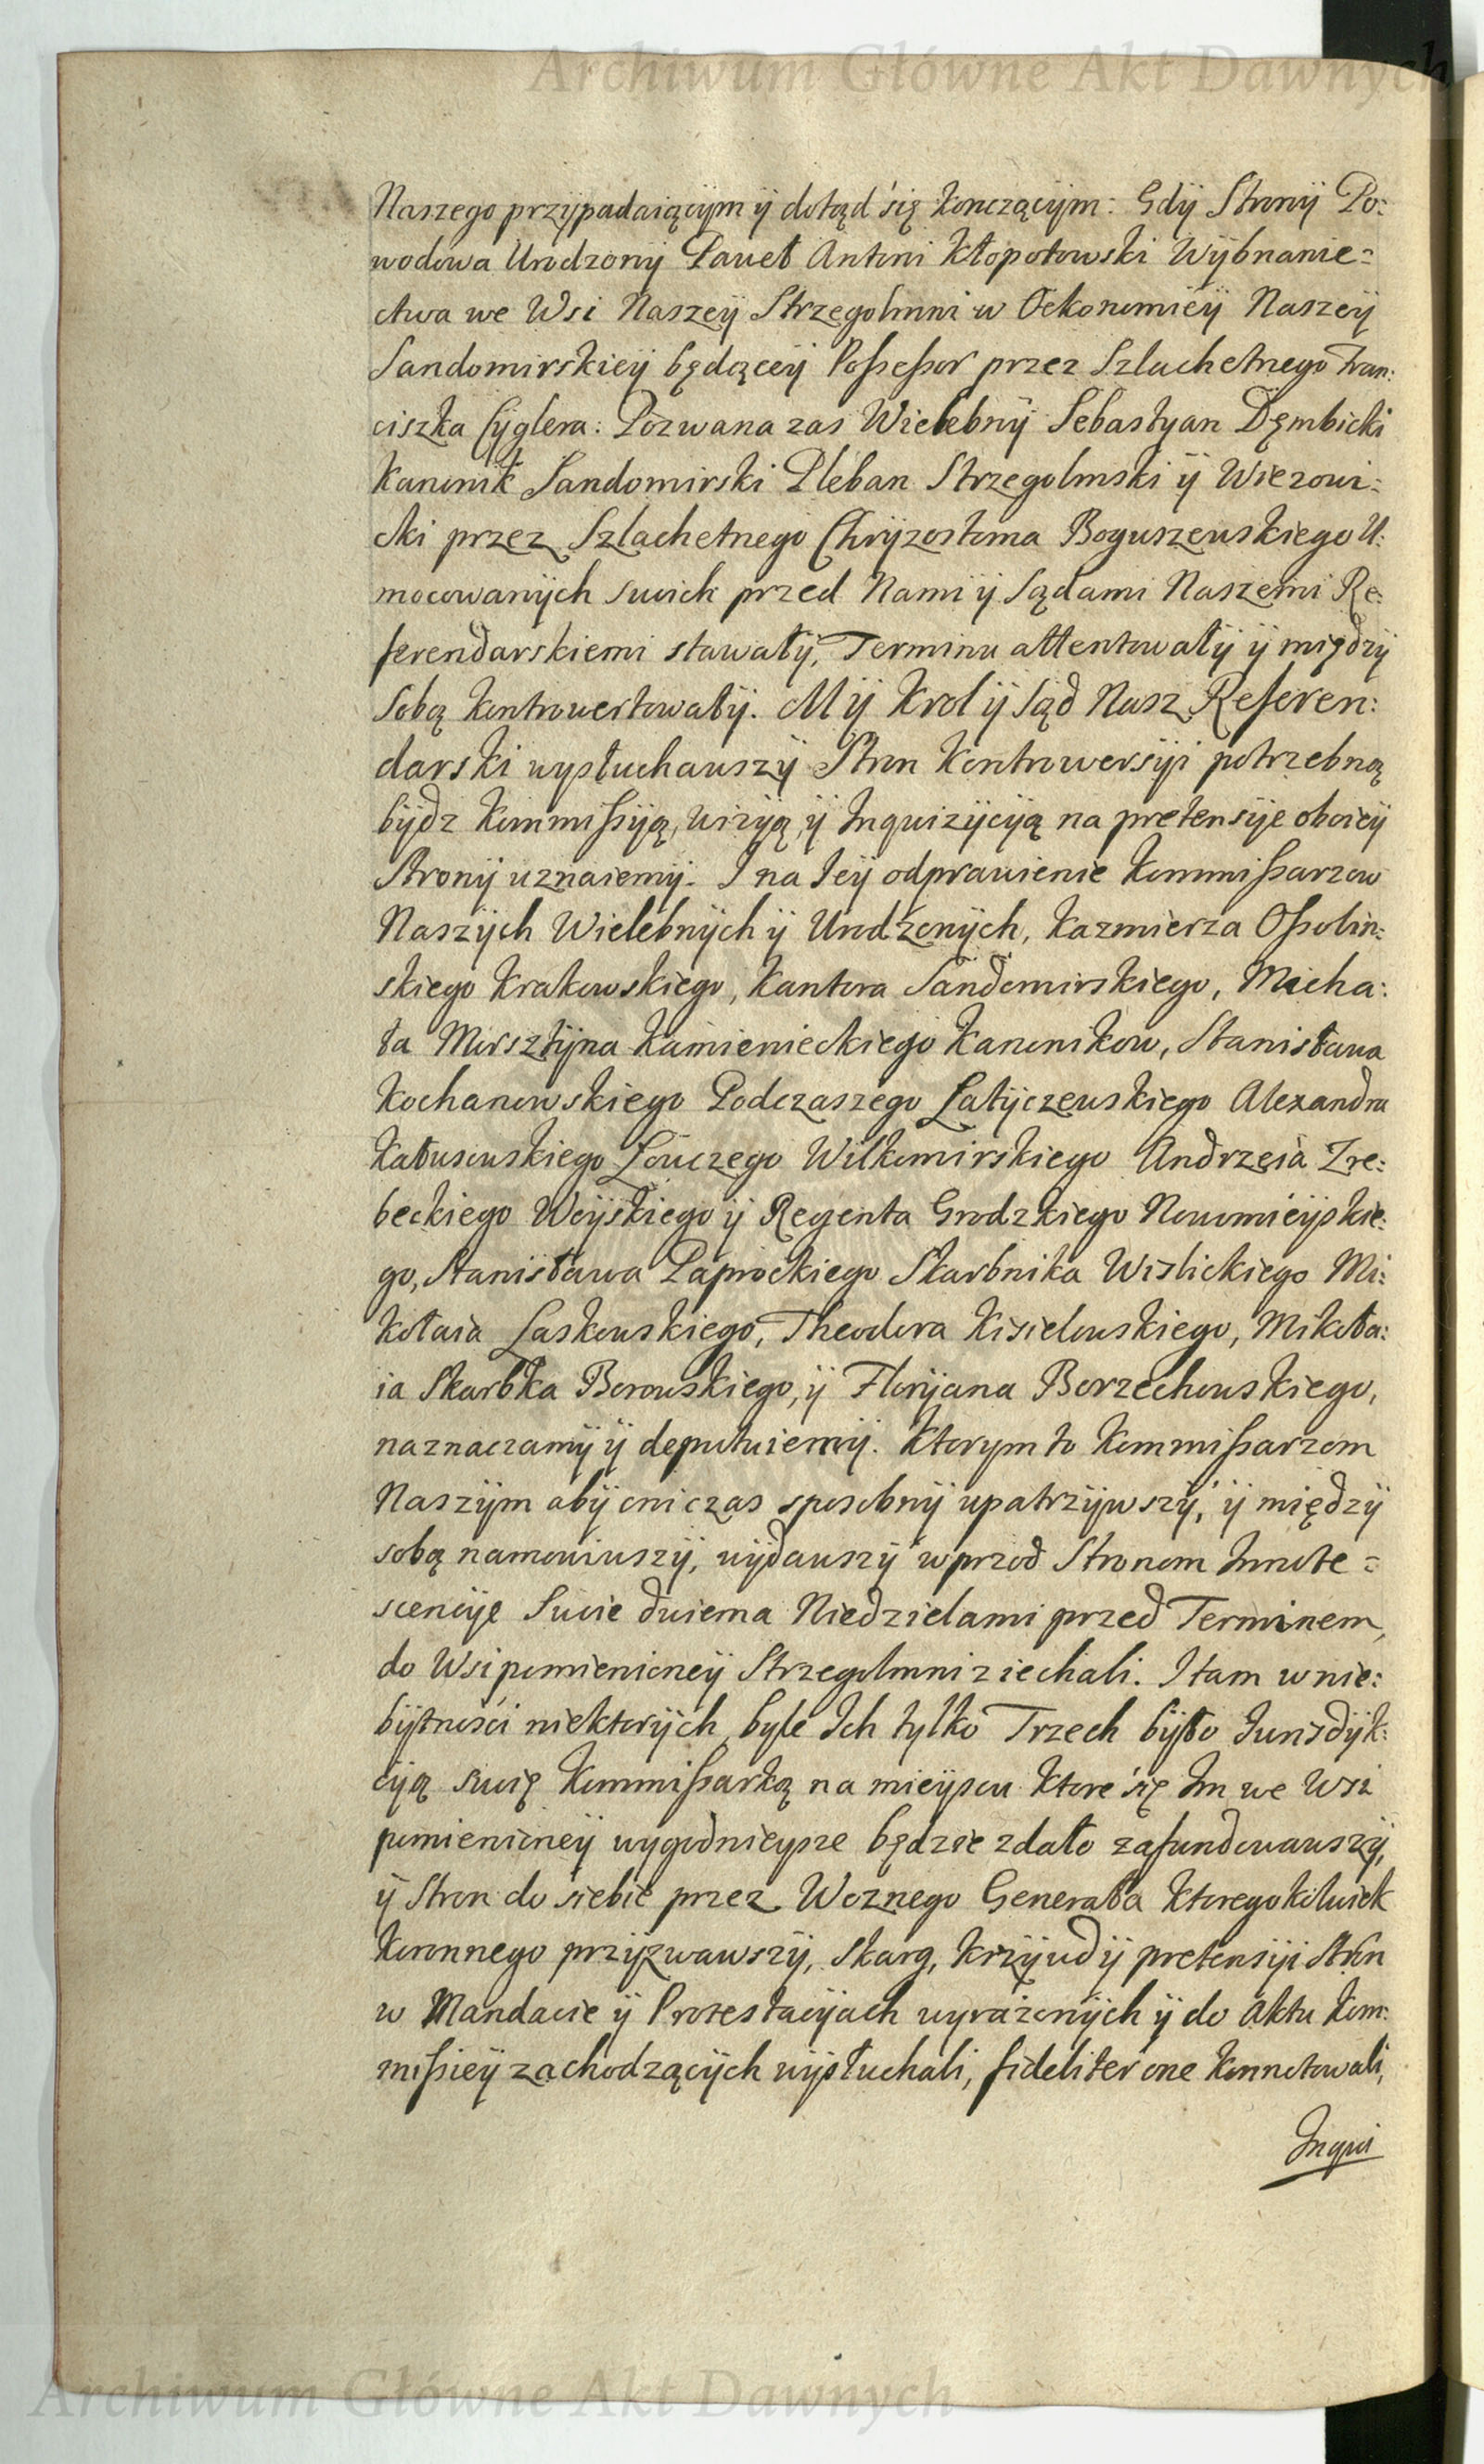 Archiwum Główne Akt Dawnych
Naszego przÿpadaiącÿm ÿ dotąd się konczącÿm: Gdÿ Stronÿ Po:
wodowa Urodzonÿ Paweł Antoni Kłopotowski Wÿbranie=
ctwa we Wsi Naszeÿ Strzegolmni w Oekonomieÿ Naszeÿ
Sandomirskieÿ będąceÿ Possessor przez Szlachetnego Fran:
ciszka Cÿglera: Pozwana zas Wielebnÿ Sebastyan Dęmbicki
Kanonik Sandomirski Pleban Strzegolmski ÿ Wierzowi:
cki przez Szlachetnego Chrÿzostoma Boguszewskiego U:
mocowanÿch swoich przed Nami ÿ Sądami Naszemi Re:
ferendarskiemi stawałÿ, Terminu attentowałÿ ÿ międzÿ
sobą kontrowertowałÿ. MÿKrol ÿ Sąd Nasz Referen:
darski wysłuchawszÿ Stron Kontrowersÿi potrzebną
bÿdz Kommissÿą, wizÿą, ÿ Inquizÿcÿą na pretensÿe oboieÿ
Stronÿ uznaiemÿ. I na Ieÿ odprawienie Kommissarzow
Naszÿch Wielebnÿch ÿ Urodzonÿch, Kazmierza Ossolin:
skiego Krakowskiego, Kantora Sandomirskiego, Micha:
ła Mirsztÿna Kamienieckiego Kanonikow, Stanisława
Kochanowskiego Podczaszego Latÿczewskiego Alexandra
Kałusowskiego Łowczego Wilkomirskiego Andrzeia Zre:
beckiego Woÿskiego ÿ Regenta Grodzkiego Nowomieÿskie:
go, Stanisława Paprockiego Skarbnika Wislickiego Mi:
kołaia Laskowskiego, Theodora Kisielewskiego, Mikoła:
ia Skarbka Borowskiego, ÿ Florÿana Borzechowskiego,
naznaczamÿ ÿ deputuiemÿ. Ktorym to Kommissarzom
Naszÿm abÿ oni czas sposobnÿ upatrzÿwszÿ, ÿ międzÿ
sobą namowiwszÿ, wÿdawszÿ wprzod Stronom Innote=
scencÿe Swoie dwiema Niedzielami przed Terminem,
do Wsi pomienioneÿ Strzegolmni ziechali. I tam w nie:
bÿtności niektorÿch, byle Ich tylko Trzech bÿło Iurisdÿk:
cÿą swoię Kommissarką na mieÿscu ktore się Im we Wsi
pomienioneÿ wygodnieÿsze będzie zdało zafundowawszÿ,
ÿ Stron do siebie przez Woznego Generała ktoregokolwiek
Koronnego przÿzwawszÿ, Skarg, krzÿwd ÿ pretensÿi Stron
w Mandacie ÿ Protestacÿach wyrażonÿch ÿ do Aktu Kom:
missieÿ zachodzącÿch wÿsłuchali, fideliter one konnotowali,
Inqui
Archiwum Główne Akt Dawnych